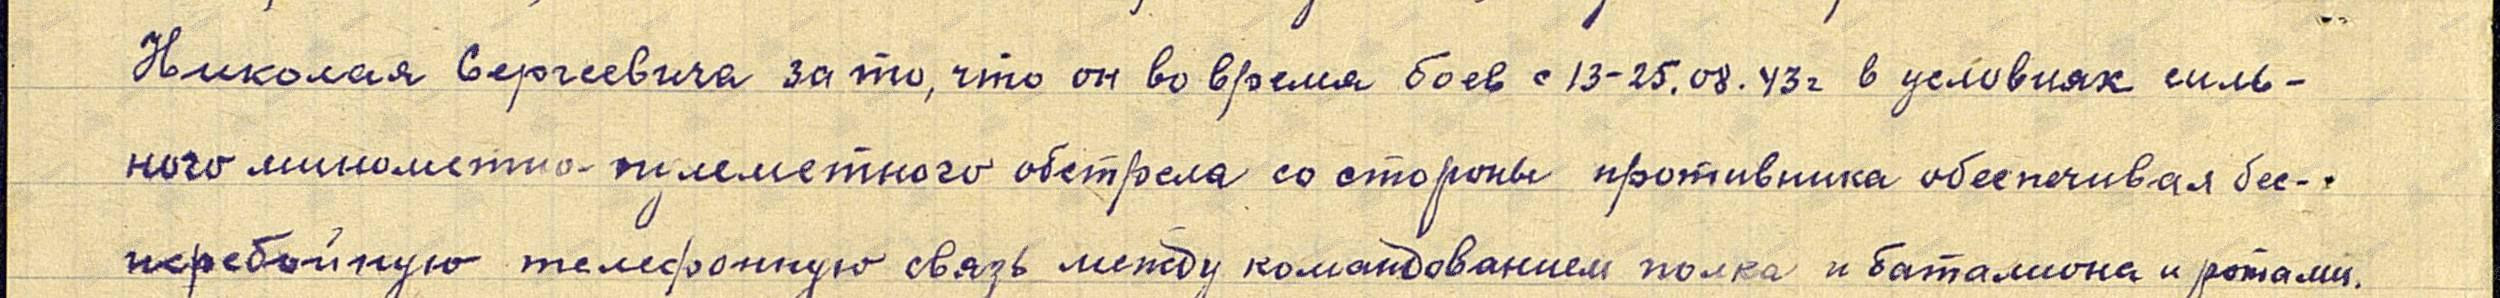 Николая Сергеевича за то, что он во время боев с 13-25.08.43г в условиях силь-
ного минометно-пулеметного обстрела со стороны противника обеспечивал бес-
перебойную телефонную связь между командованием полка и баталиона и ротами.